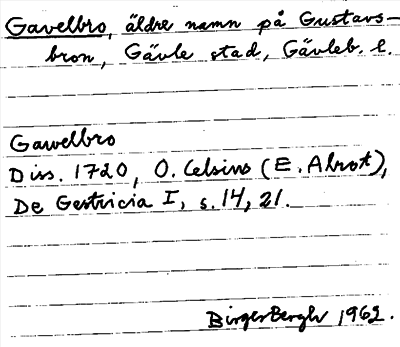 Gavelbro, äldre namn på Gustavs-
bron, Gävle stad, Gävleb. l.
Gawelbro
Diss. 1720, O. Celsius (E. Alrot),
De Gestricia I, s. 14, 21.
Birger Bergh 1962.